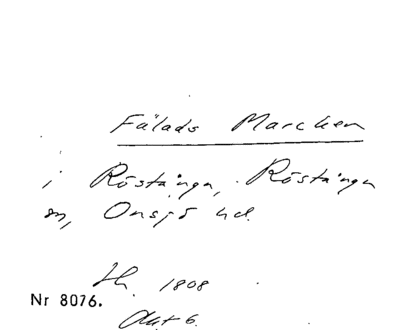 Fälads Marcken
i Röstånga, Röstånga
sn, Onsjö hd.
1808
Nr 8076.
Akt 6.